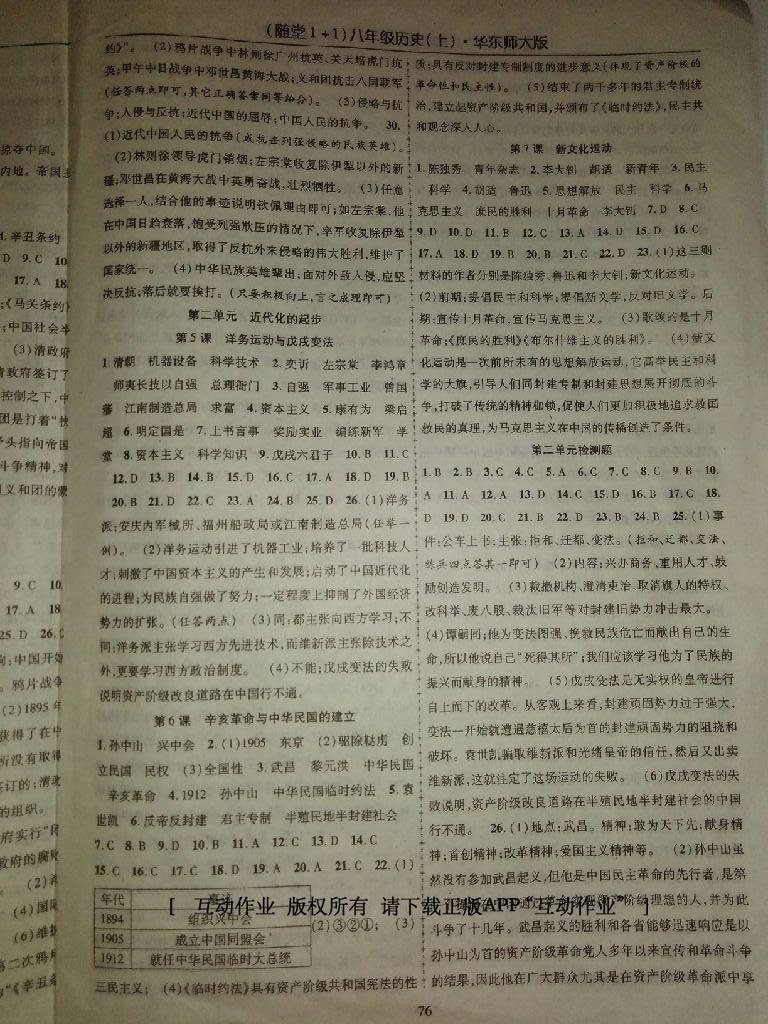 (随堂1+1)八年级历史(上)·华东师大版
约》”。 (2)鸦片战争中林则徐广州抗英、关天培虎门抗
英;甲午中日战争中邓世昌黄海大战;义和团抗击八国联军
(任答两点即可,其它正确答案同等给分)。 (3)侵略与抗
争;入侵与反抗;近代中国的屈辱;中国人民的抗争。 30.
(1)近代中国人民的抗争(或抗击列强侵略的民族英雄)。
(2)林则徐领导虎门销烟;左宗棠收复除伊犁以外的新
疆;邓世昌在黄海大战中英勇奋战,壮烈牺牲。 (3)任意
选择一人,结合他的事迹说明钦佩理由即可;如左宗棠,他
在中国日趋衰落,饱受列强欺压的情况下,率军收复除伊犁
以外的新疆地区,取得了反抗外来侵略的伟大胜利,维护了
国家统一。 (4)中华民族英雄辈出;面对外敌入侵,应坚
决反抗;落后就要挨打。(只要积极向上,言之成理即可)
第二单元 近代化的起步
第5课 洋务运动与戊戌变法
1.清朝 机器设备 科学技术 2.奕䜣 左宗棠 李鸿章
师夷长技以自强 总理衙门 3.自强 军事工业 曾国
藩 江南制造总局 求富 4.资本主义 5.康有为 梁启
超 6.明定国是 7.上书言事 奖励实业 编练新军 学
堂 8.资本主义 科学知识 9.戊戌六君子 10.B 11.C
12.D 13.B 14.B 15.D 16.C 17.A 18.D 19.B
20.B 21.D 22.C 23.A 24.B 25.D 26.(1)洋务
派;安庆内军械所、福州船政局或江南制造总局(任举一
例)。 (2)洋务运动引进了机器工业;培养了一批科技人
才;刺激了中国资本主义的产生和发展;启动了中国近代化
的进程;为民族自强做了努力;一定程度上抑制了外国经济
势力的扩张。(任答两点) (3)同:都主张向西方学习;不
同:洋务派主张学习西方先进技术,而维新派主张除技术之
外,更要学习西方政治制度。 (4)不能;戊戌变法的失败
说明资产阶级改良道路在中国行不通。
第6课 辛亥革命与中华民国的建立
1.孙中山 兴中会 2.(1)1905 东京 (2)驱除鞑虏 创
立民国 民权 (3)全国性 3.武昌 黎元洪 中华民国
辛亥革命 4.1912 孙中山 中华民国临时约法 5.袁
世凯 6.反帝反封建 君主专制 半殖民地半封建社会
7.C 8.B 9.D 10.B 11.A 12.C 13.D 14.C
15.C 16.C 17.C 18.D 19.A 20.A 21.C 22.(1)
年代
1894 组织兴中会
1905 成立中国同盟会
1912 就任中华民国临时大总统
(2)③②①; (3)
三民主义; (4)《临时约法》具有资产阶级共和国宪法的性
质;具有反对封建专制制度的进步意义(体现了资产阶级的
革命性和民主性)。 (5)结束了两千多年的君主专制统
治,建立起资产阶级共和国,并颁布了《临时约法》,民主共
和观念深入人心。
第7课 新文化运动
1.陈独秀 青年杂志 2.李大钊 胡适 新青年 3.民主
科学 4.胡适 鲁迅 5.思想解放 民主 科学 6.马
克思主义 庶民的胜利 十月革命 李大钊 7.D 8.C
9.D 10.D 11.B 12.C 13.A 14.D 15.D 16.C
17.A 18.D 19.B 20.D 21.C 22.D 23.(1)这三则
材料的作者分别是陈独秀、鲁迅和李大钊;新文化运动。
(2)前期:提倡民主和科学;提倡新文学,反对旧文学。后
期:宣传十月革命,宣传马克思主义。 (3)歌颂的是十月
革命;《庶民的胜利》《布尔什维主义的胜利》。 (4)新文
化运动是一次前所未有的思想解放运动,它高举民主和科
学的大旗,引导人们同封建专制和封建思想展开彻底的斗
争,打破了传统的精神枷锁,促使人们更加积极地追求救国
救民的真理,为马克思主义在中国的传播创造了条件。
第二单元检测题
1.B 2.B 3.C 4.C 5.A 6.C 7.C 8.C 9.B 10.
A 11.A 12.A 13.D 14.C 15.D 16.B 17.C 18.
D 19.D 20.C 21.B 22.D 23.B 24.B 25.(1)事
件:公车上书;主张:拒和、迁都、变法。(拒和、迁都、变法、
练兵四点答其一即可) (2)内容:兴办商务,重用人才,鼓
励创造发明。 (3)裁撤机构、澄清吏治、取消旗人的特权、
改科举、废八股、裁汰旧军等对封建旧势力冲击最大。
(4)谭嗣同;他为变法图强、挽救民族危亡而献出自己的生
命,所以他说自己“死得其所”;我们应该学习他为了民族的
振兴而献身的精神。 (5)戊戌变法是无实权的皇帝进行
自上而下的改革。从客观上来看,封建顽固势力过于强大,
变法一开始就遭遇慈禧太后为首的封建顽固势力的阻挠和
破坏。袁世凯骗取维新派和光绪皇帝的信任,然后又出卖
维新派,这就注定了这场运动的失败。 (6)戊戌变法的失
败说明,资产阶级改良道路在半殖民地半封建社会的中国
行不通。 26.(1)地点:武昌。精神:敢为天下先;献身精
神;首创精神;改革精神;爱国主义精神等。 (2)孙中山虽
然没有参加武昌起义,但他是中国民主革命的先行者,是第
阶级理想的人,并为此
斗争了十几年。武昌起义的胜利和各省能够迅速响应是以
孙中山为首的资产阶级革命党人多年以来宣传和革命斗争
的结果,因此他在广大群众尤其是在资产阶级革命派中享
[ 互动作业 版权所有 请下载正版APP“互动作业” ]
76